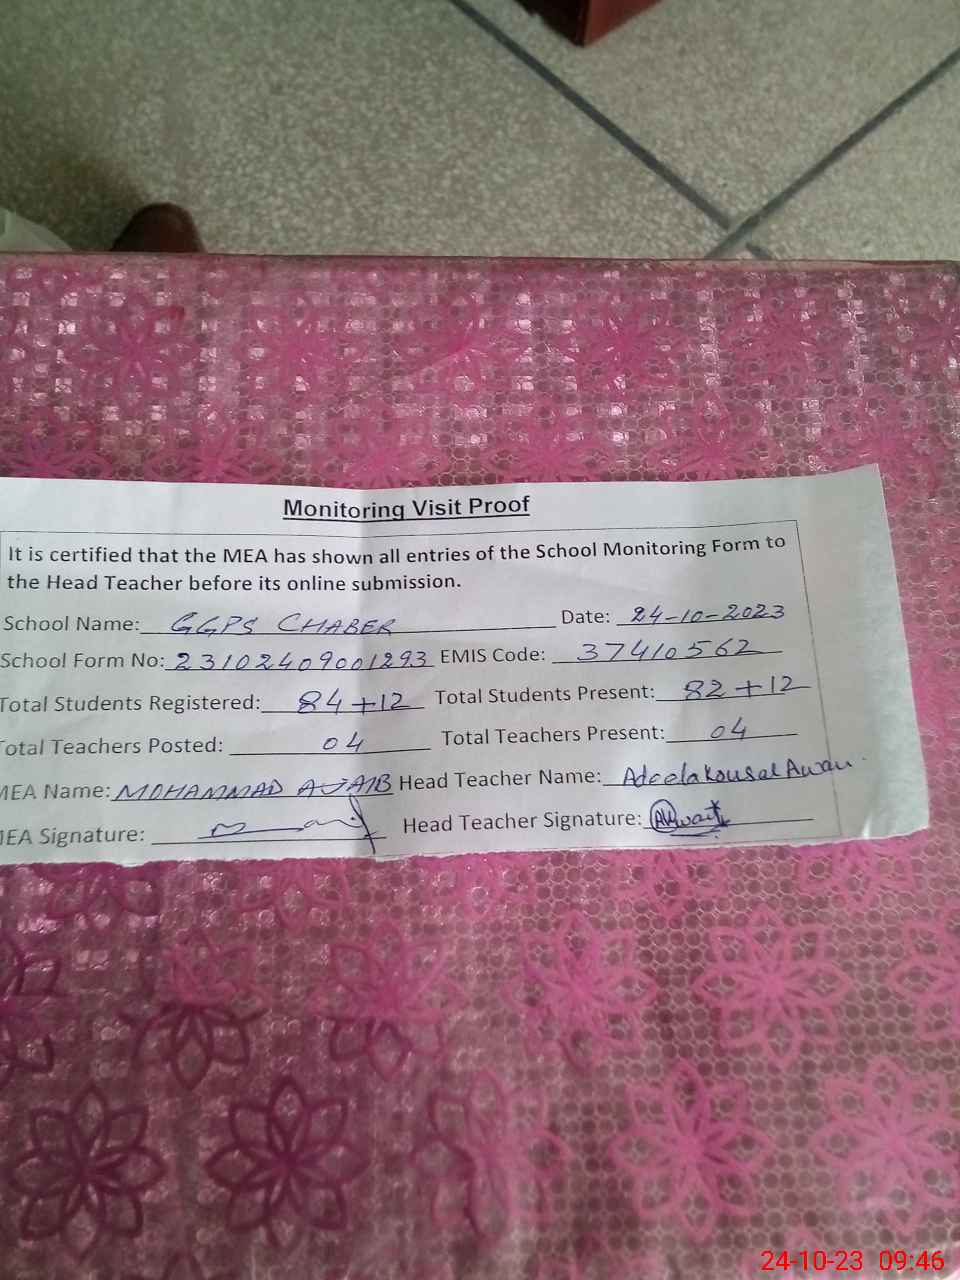 Monitoring Visit Proof
It is certified that the MEA has shown all entries of the School Monitoring Form to
the Head Teacher before its online submission.
School Name: GGPS CHABER Date: 24-10-2023
School Form No: 23102409001293 EMIS Code: 37410562
Total Students Registered: 84+12 Total Students Present: 82+12
Total Teachers Posted: 04 Total Teachers Present: 04
MEA Name: MOHAMMAD AJAIB Head Teacher Name: Adeela Kousal Awan
MEA Signature: Head Teacher Signature:
24-10-23 09:46